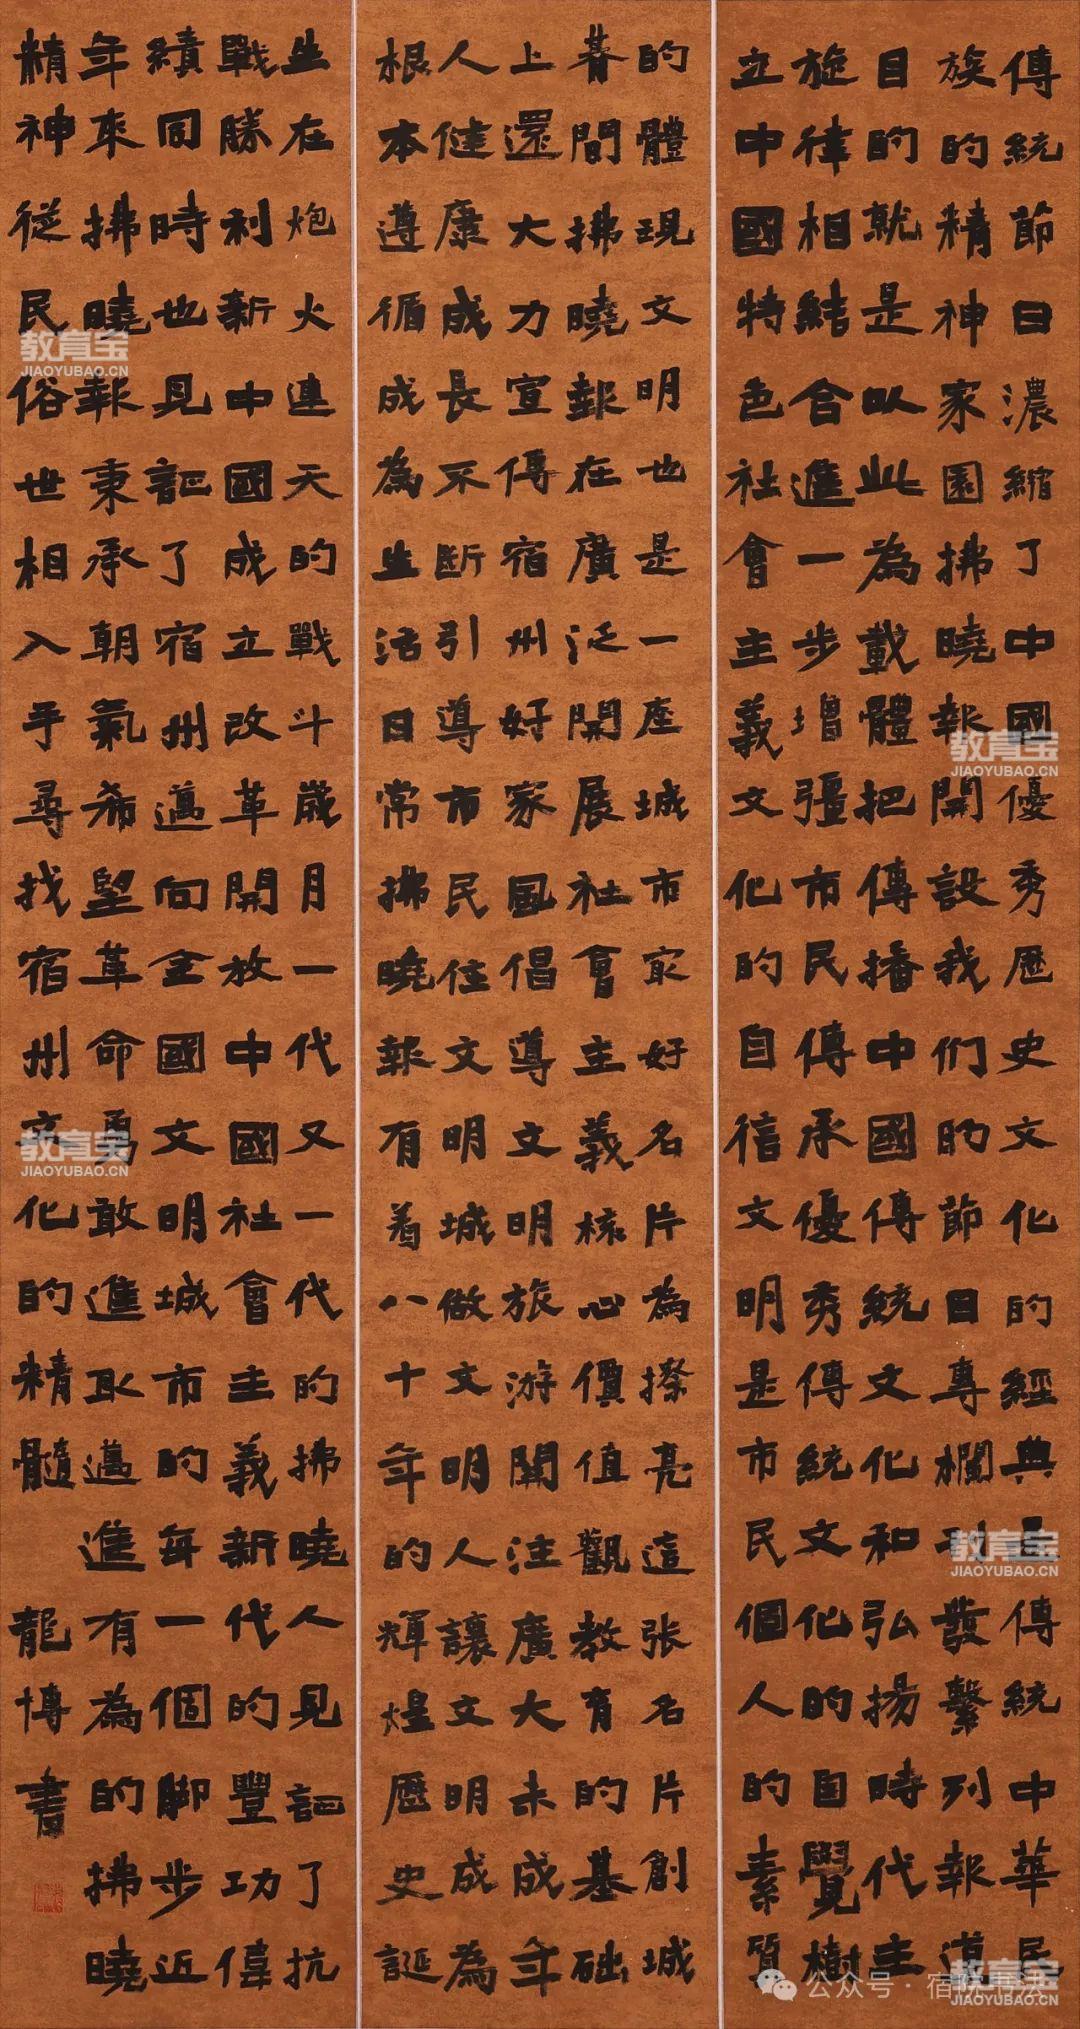 傳統節日濃縮了中國優秀歷史文化的經典是傳統中華民
族的精神家園拂曉報開設我们的節日專欄刊發繫列報道
目的就是以此為載體把傳播中國傳統文化和弘揚時代主
旋律相結合進一步增彊市民傳承優秀傳統文化的自覺樹
立中國特色社會主義文化的自信文明是市民個人的素質
的體現文明也是一座城市最好名片為擦亮這张名片創城
朞間拂曉報在廣泛開展社會主義核心價值觀教有的基础
上還大力宣傳宿州好家風倡導文明旅游關注廣大未成年
人健康成長不断引導市民住文明城做文明人讓文明成為
根本遵循成為生活日常拂曉報有着八十年的輝煌歷史誕
生在炮火連天的戰斗歲月一代又一代的拂曉人見証了抗
戰勝利新中國成立改革開放中國社會主義新代的豐功偉
績同時也見証了宿州邁向全國文明城市的每一個脚步近
年來拂曉報秉承朝氣希望革命勇敢進取邁進有為的拂曉
精神從民俗世相入手尋找宿州文化的精髓
龍博書
教育宝
JIAOYUBAO.CN
教育宝
JIAOYUBAO.CN
教育宝
JIAOYUBAO.CN
教育宝
JIAOYUBAO.CN
教育宝
JIAOYUBAO.CN
公众号·宿院书法